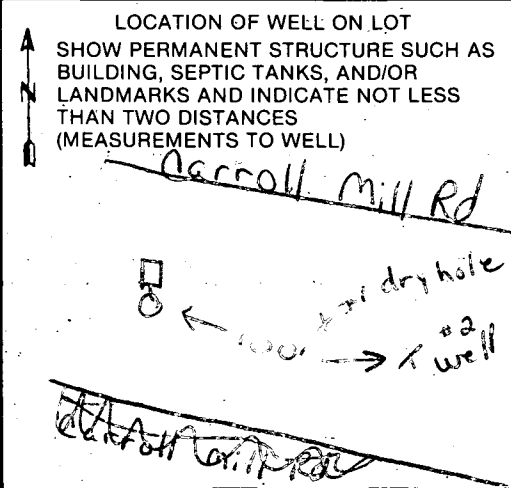 LOCATION OF WELL ON LOT
SHOW PERMANENT STRUCTURE SUCH AS
BUILDING, SEPTIC TANKS, AND/OR
N LANDMARKS AND INDICATE NOT LESS
THAN TWO DISTANCES
(MEASUREMENTS TO WELL)
Carroll Mill Rd
#1 dry hole
100'
#2
well
Carroll Mill Rd